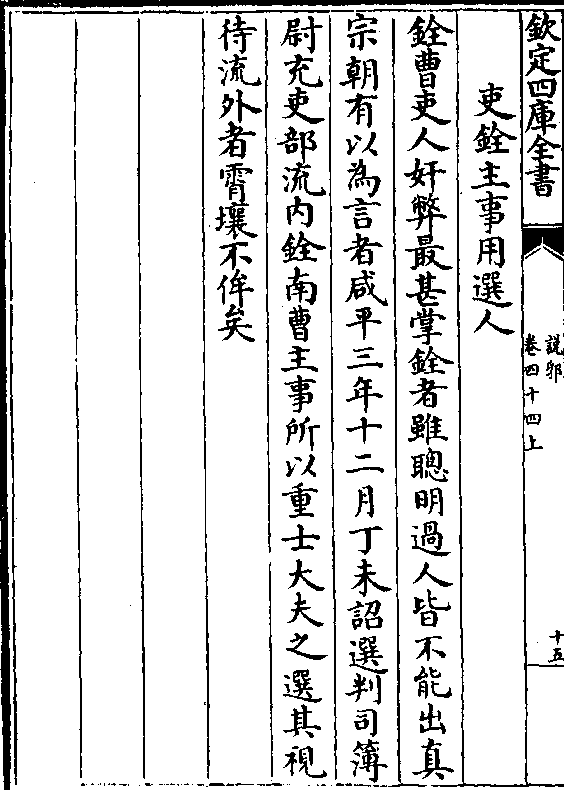 欽定四庫全書
說郛
卷四十四上
十五
吏銓主事用選人
銓曹吏人奸弊最甚掌銓者雖聰明過人皆不能出真
宗朝有以為言者咸平三年十二月丁未詔選判司簿
尉充吏部流内銓南曹主事所以重士大夫之選其視
待流外者霄壤不侔矣